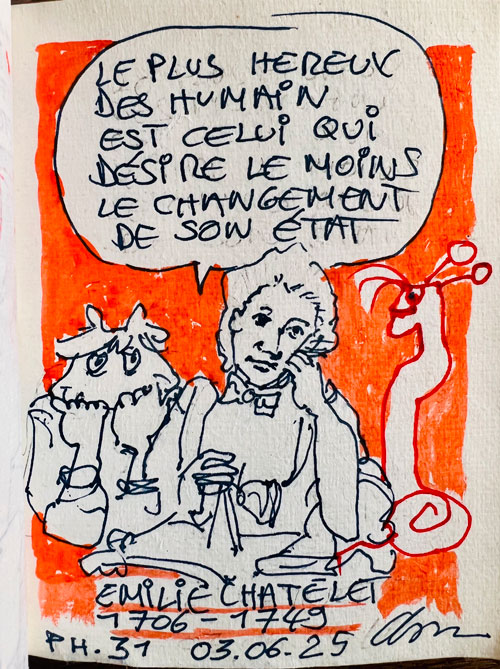 LE PLUS HEREUX
DES HUMAIN
EST CELUI QUI
DÉSIRE LE MOINS
LE CHANGEMENT
DE SON ÉTAT
EMILIE CHATELET
1706-1749
PH.31 03.06.25